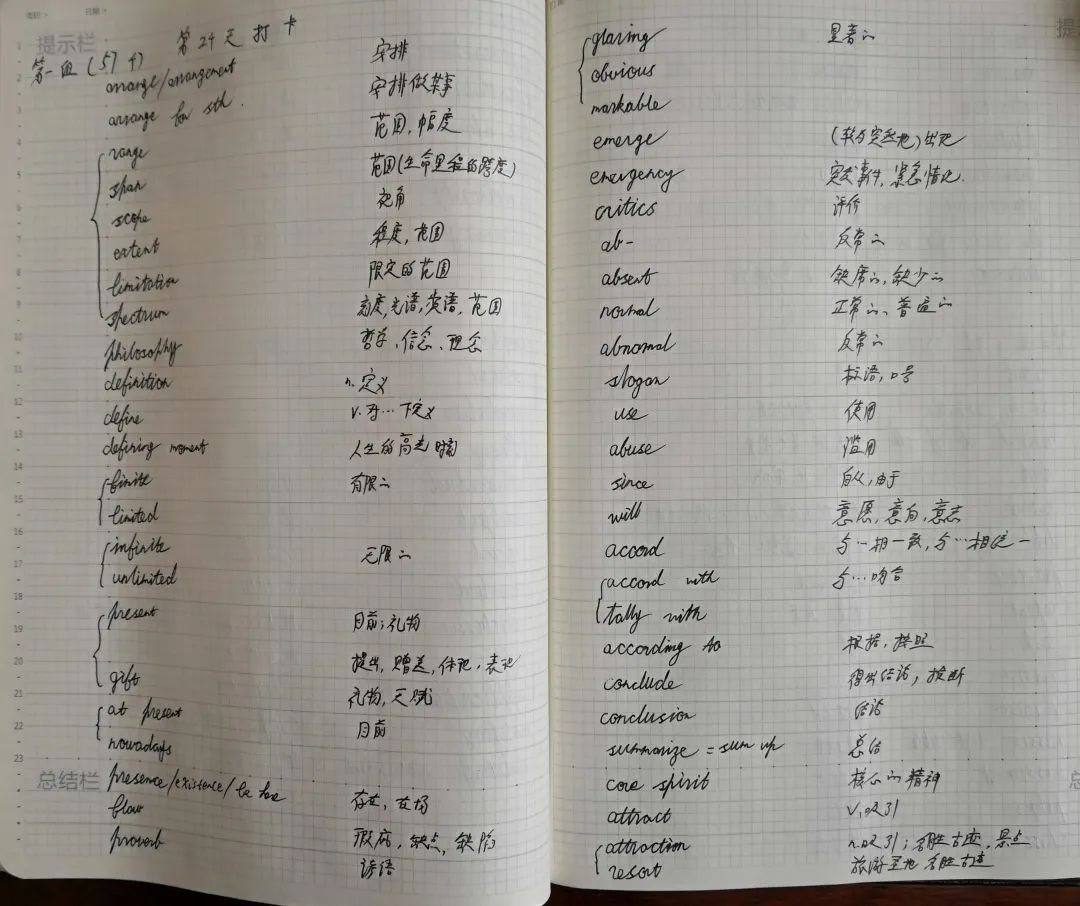 提示栏
第24天打卡
第一组(57个)
arrange/arrangement 安排
arrange for sth. 安排做某事
range 范围,幅度
span 范围(生命里程的跨度)
scope 视角
extent 程度,范围
limitation 限定的范围
spectrum 光谱,英语,范围
philosophy 哲学、信念、理念
definition n.定义
define v.对…下定义
defining moment 人生的高光时刻
finite 有限的
limited
infinite 无限的
unlimited
present 目前;礼物
提出,赠送,体现,表现
gift 礼物,天赋
at present 目前
nowadays
总结栏
presence/existence/be here 存在,在场
flaw 瑕疵,缺点,缺陷
proverb 谚语
glaring 显著的
obvious
markable
emerge (较为突然地)出现
emergency 突发事件,紧急情况.
critics 评价
ab- 反常的
absent 缺席的,缺少的
normal 正常的、普通的
abnomal 反常的
slogan 标语,口号
use 使用
abuse 滥用
since 自从,由于
will 意愿,意向,意志
accord 与…相一致,与…相统一
accord with 与…吻合
tally with
according to 根据,按照
conclude 得出结论,推断
conclusion 结论
summarize = sum up 总结
core spirit 核心的精神
attract v.吸引
attraction n.吸引;名胜古迹,景点
resort 旅游圣地 名胜古迹